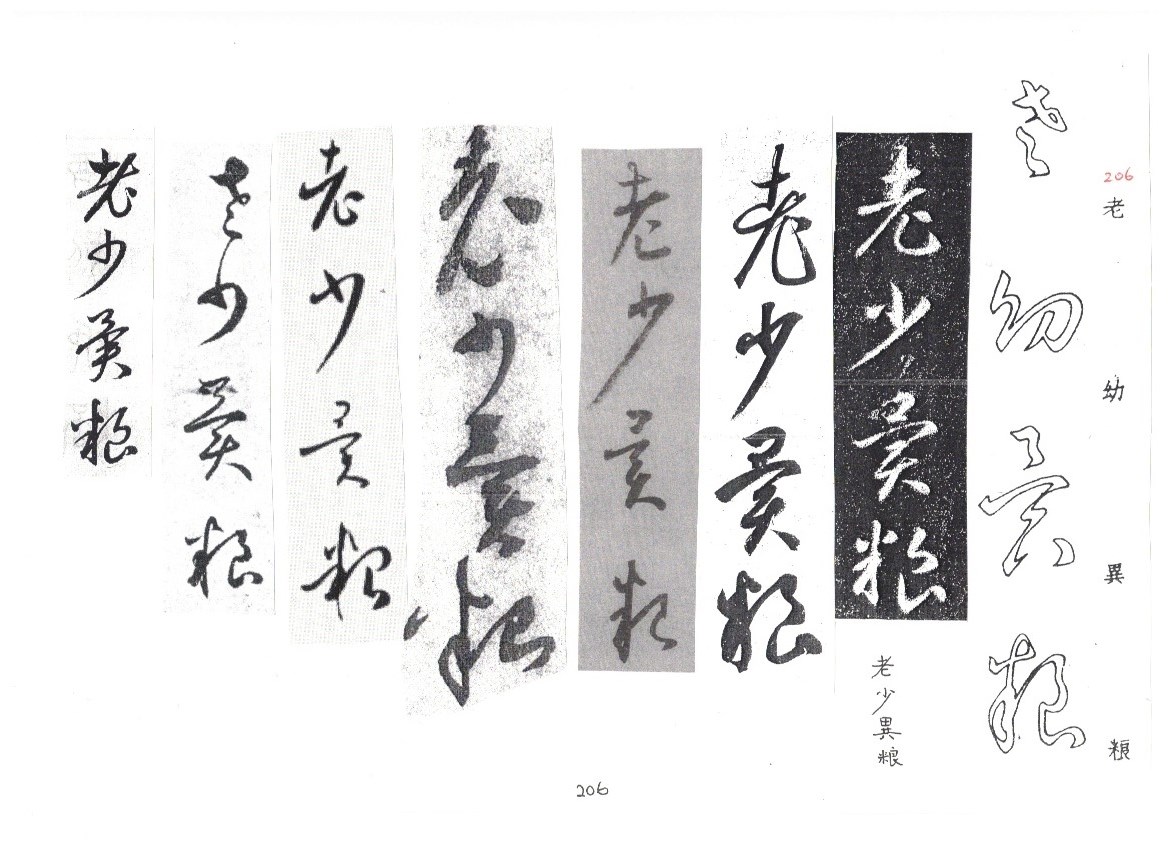 206
老幼異粮
老幼異粮
老少異粮
老少異粮
老少異粮
老少異粮
老少異粮
老少異粮
老少異粮
老少異粮
206